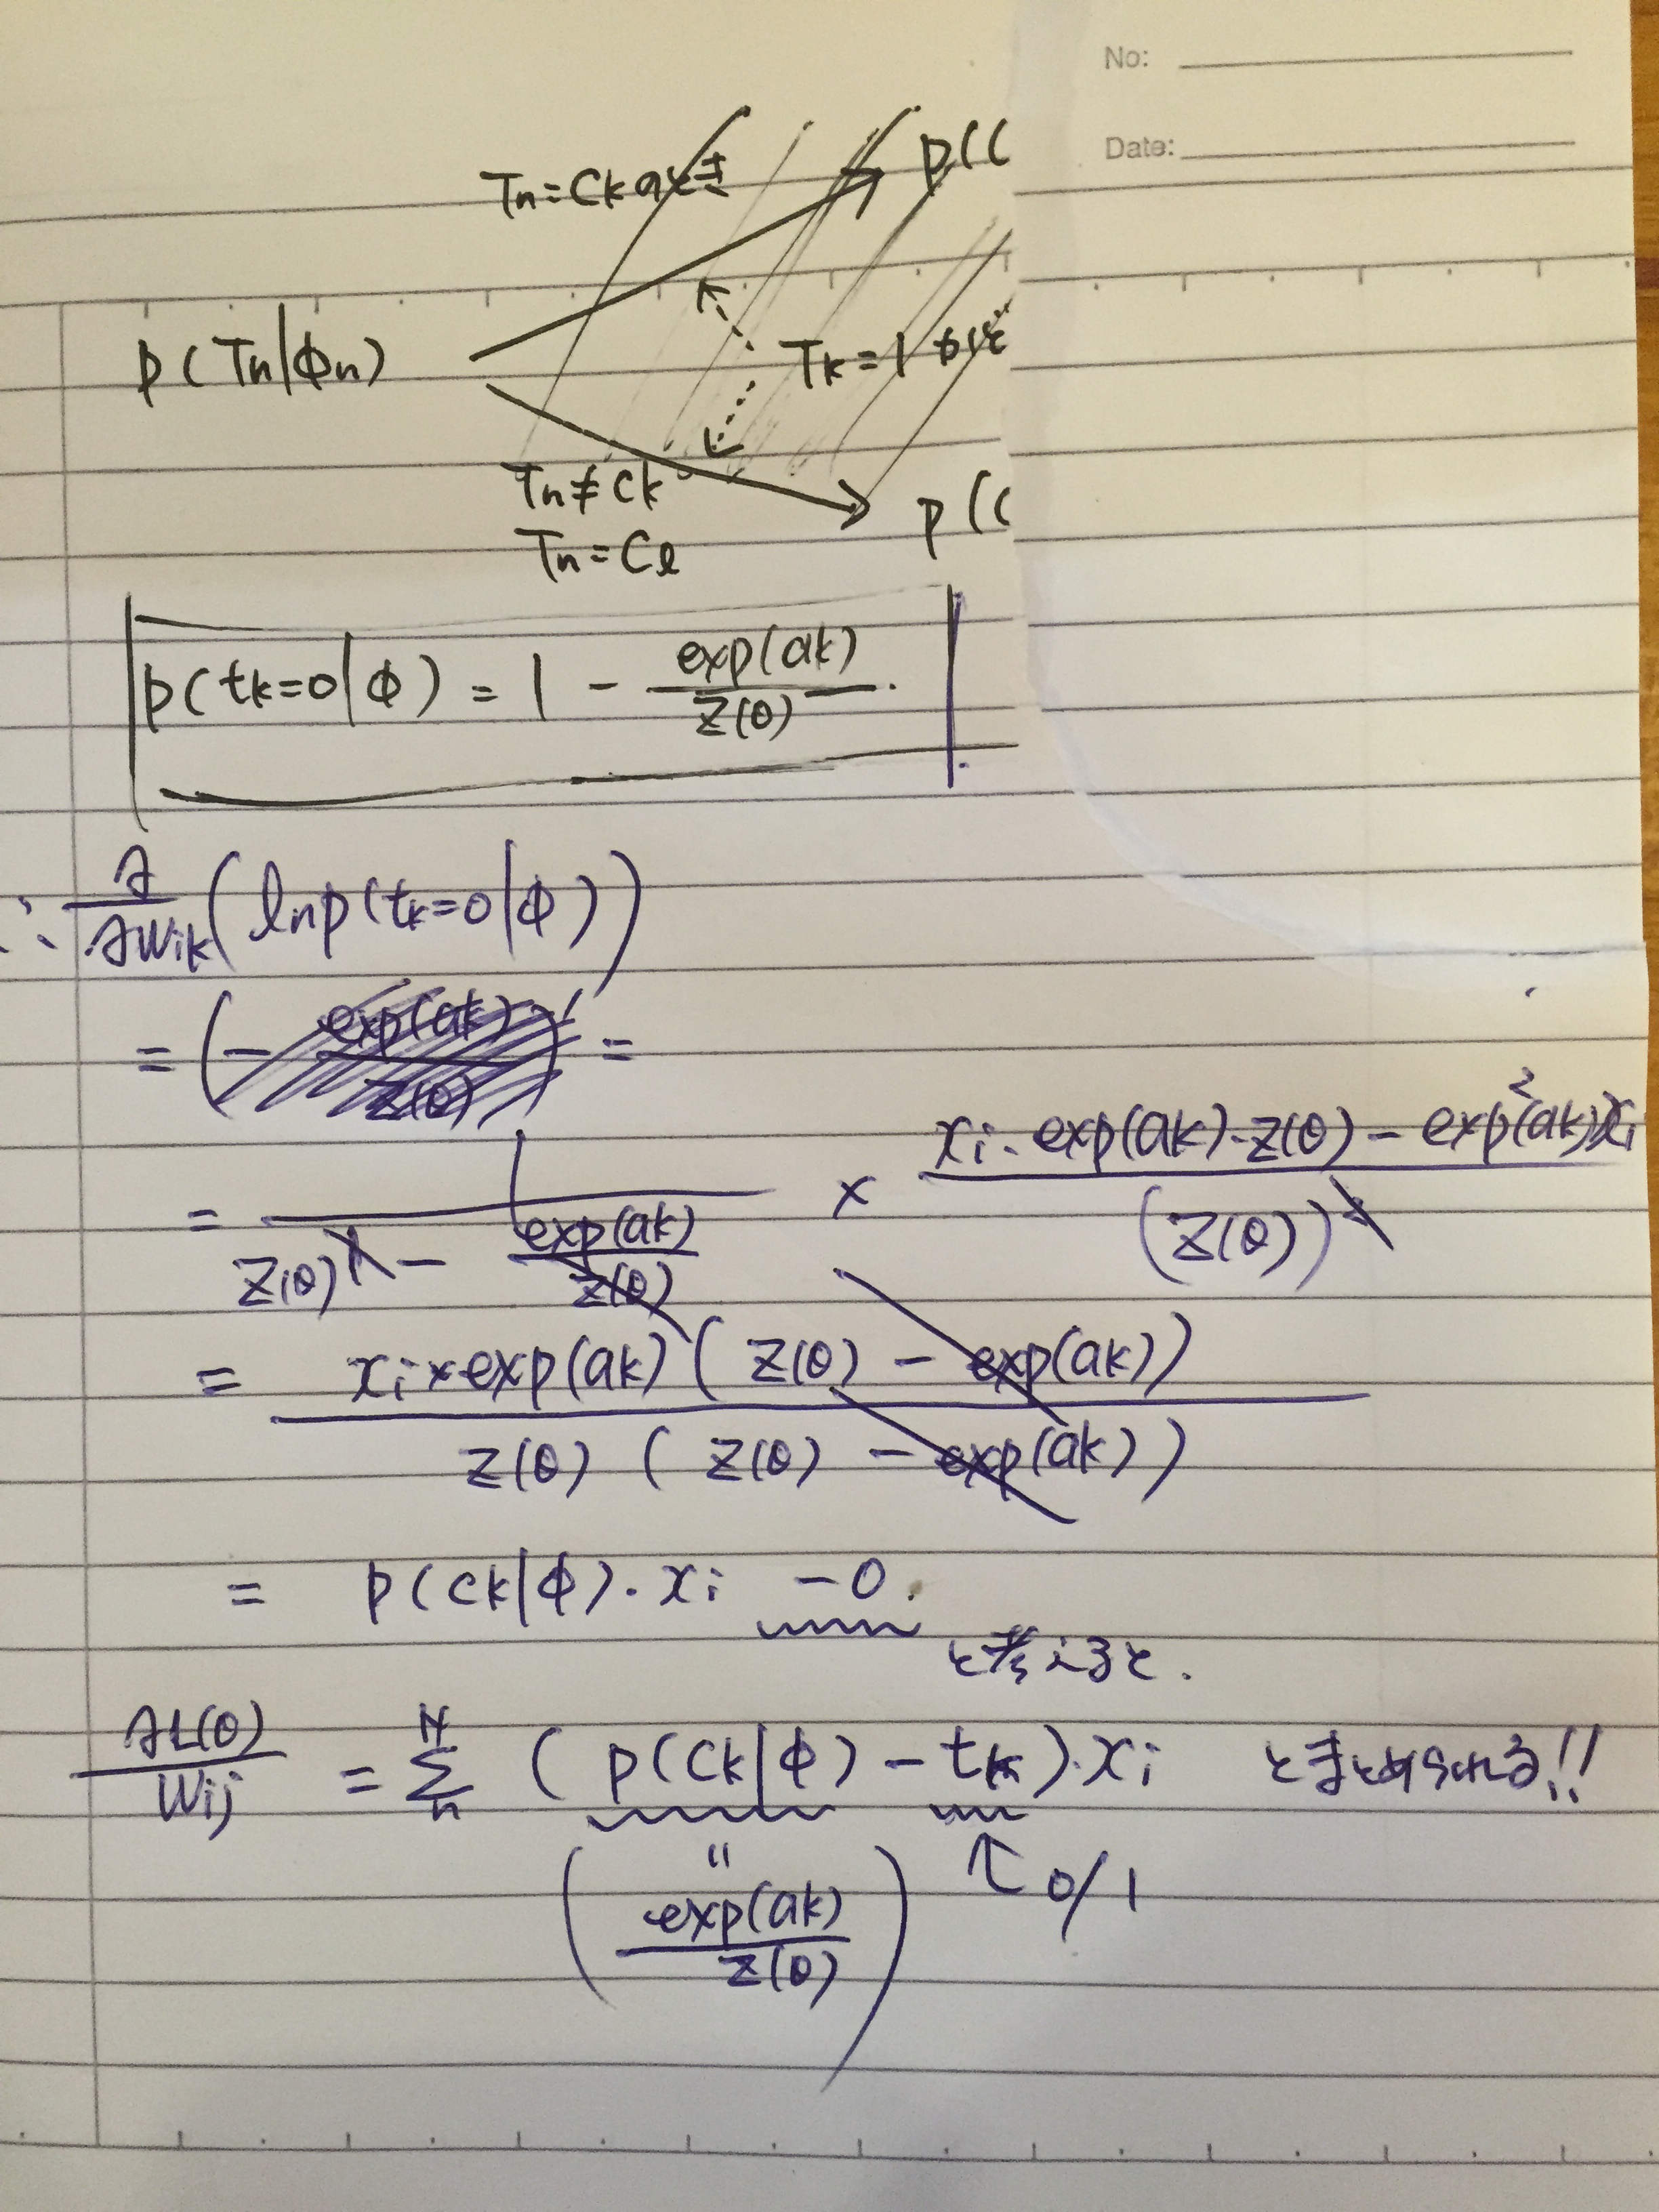 No:
Date:
Tn=Ck のとき
p(C
p(Tn|Φn)
Tk=1
Tn≠Ck
Tn=Cl
p(C
p(tk=0|Φ) = 1 - exp(ak)/Z(θ)
∴ ∂/∂wik (ln p(tk=0|Φ))
= (- exp(ak)/Z(θ))' =
= 1/(Z(θ)1 - exp(ak)/Z(θ)) × (xi・exp(ak)・Z(θ) - exp²(ak)xi)/(Z(θ))²
= xi×exp(ak)(Z(θ) - exp(ak)) / Z(θ)(Z(θ) - exp(ak))
= p(ck|Φ)・xi -0.
と考えると.
∂L(θ)/wij = Σ N n (p(ck|Φ) - tk)・xi とまとめられる!!
(" exp(ak)/Z(θ)) ↑ 0/1